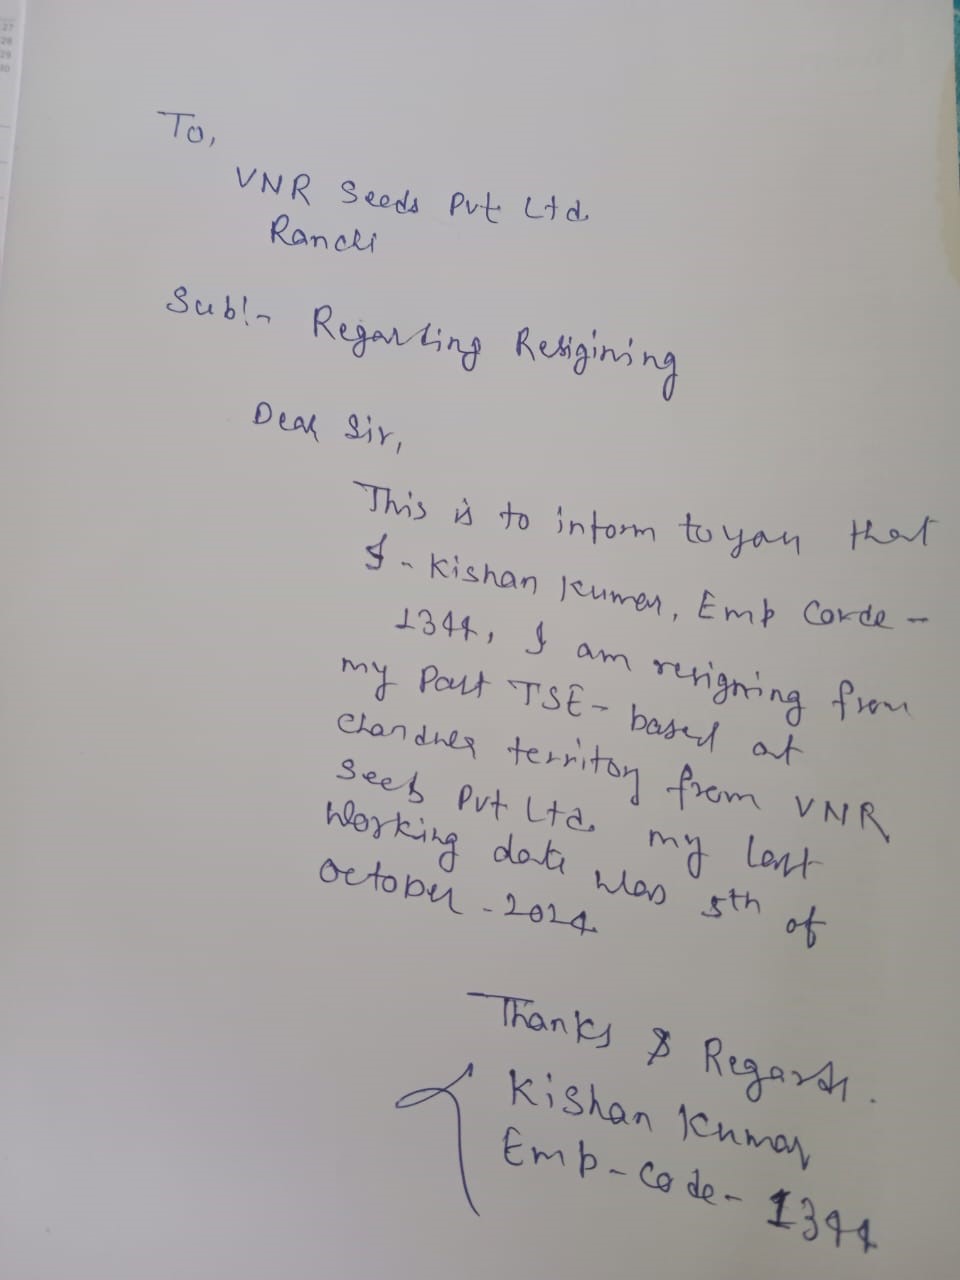 To,
VNR Seeds Pvt Ltd
Ranchi
Sub!- Regarding Resigining
Dear Sir,
This is to inform to you that
I - Kishan Kumar, Emp Corde -
1344, I am resigning from
my Post TSE - based at
territory from VNR
Seeds Pvt Ltd. my last
working date was 5th of
October - 2024
Thanks & Regards.
Kishan Kumar
Emp - Code - 1344
27
28
29
30